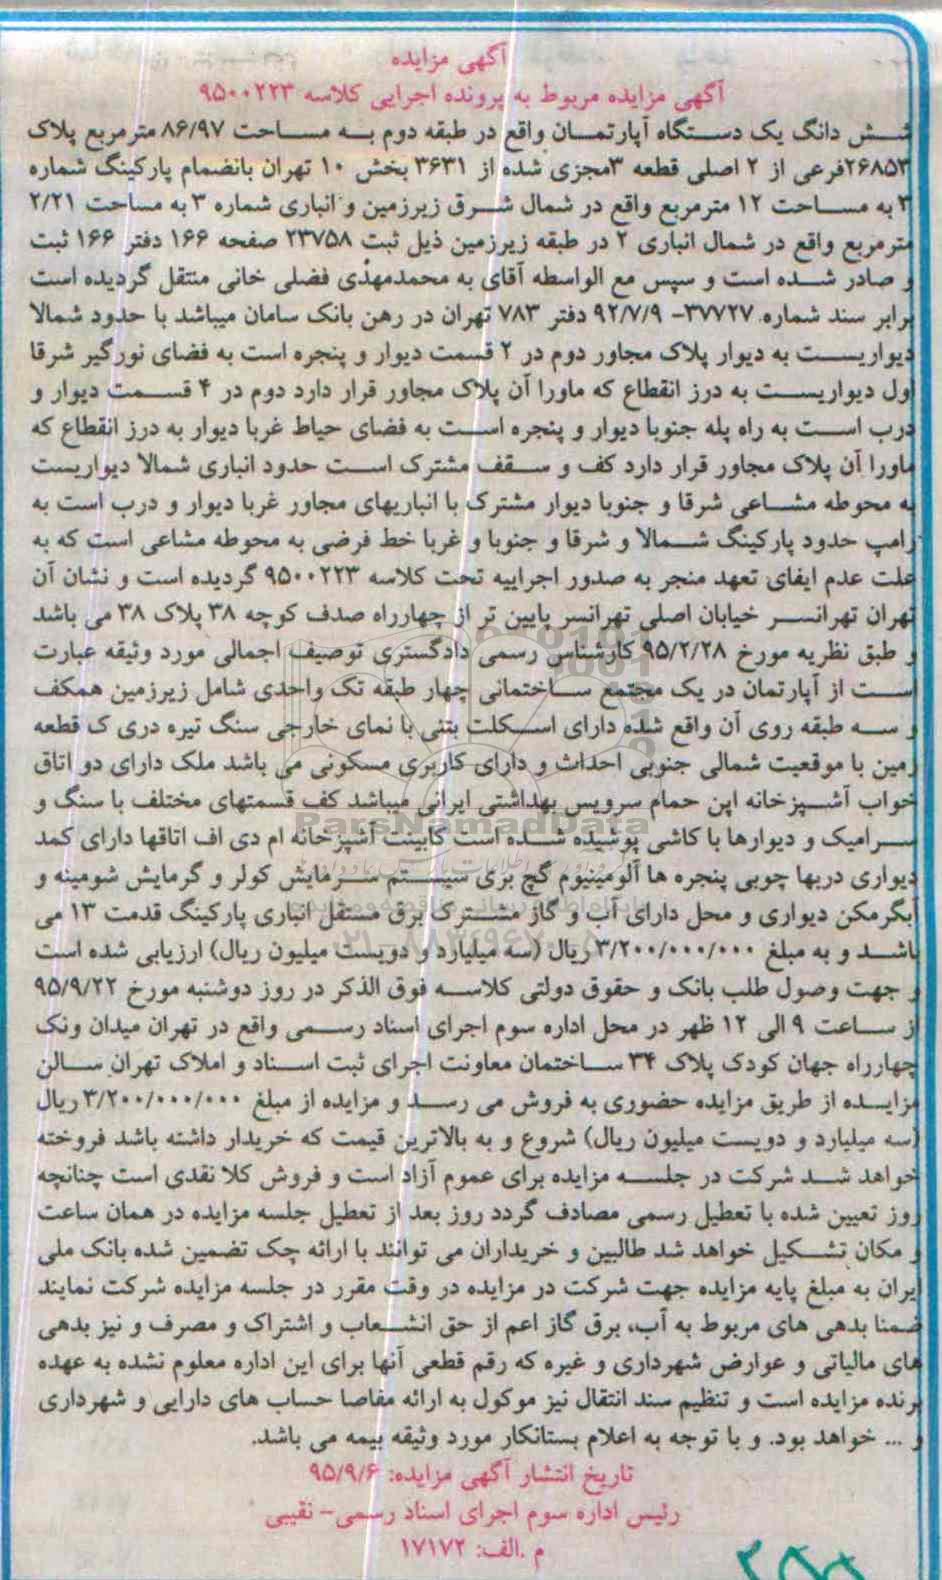 آگهی مزایده
آگهی مزایده مربوط به پرونده اجرایی کلاسه ۹۵۰۰۲۲۳
شش دانگ یک دستگاه آپارتمان واقع در طبقه دوم به مساحت ۸۶/۹۷ مترمربع پلاک
۲۶۸۵۳فرعی از ۲ اصلی قطعه ۳مجزی شده از ۳۶۳۱ بخش ۱۰ تهران بانضمام پارکینگ شماره
۳ به مساحت ۱۲ مترمربع واقع در شمال شرق زیرزمین و انباری شماره ۳ به مساحت ۲/۲۱
مترمربع واقع در شمال انباری ۲ در طبقه زیرزمین ذیل ثبت ۲۳۷۵۸ صفحه ۱۶۶ دفتر ۱۶۶ ثبت
و صادر شده است و سپس مع الواسطه آقای به محمدمهدی فضلی خانی منتقل گردیده است
برابر سند شماره ۳۷۷۲۷- ۹۲/۷/۹ دفتر ۷۸۳ تهران در رهن بانک سامان میباشد با حدود شمالا
دیواریست به دیوار پلاک مجاور دوم در ۲ قسمت دیوار و پنجره است به فضای نورگیر شرقا
اول دیواریست به درز انقطاع که ماورا آن پلاک مجاور قرار دارد دوم در ۴ قسمت دیوار و
درب است به راه پله جنوبا دیوار و پنجره است به فضای حیاط غربا دیوار به درز انقطاع که
ماورا آن پلاک مجاور قرار دارد کف و سقف مشترک است حدود انباری شمالا دیواریست
به محوطه مشاعی شرقا و جنوبا دیوار مشترک با انباریهای مجاور غربا دیوار و درب است به
رامپ حدود پارکینگ شمالا و شرقا و جنوبا و غربا خط فرضی به محوطه مشاعی است که به
علت عدم ایفای تعهد منجر به صدور اجراییه تحت کلاسه ۹۵۰۰۲۲۳ گردیده است و نشان آن
تهران تهرانسر خیابان اصلی تهرانسر پایین تر از چهارراه صدف کوچه ۳۸ پلاک ۳۸ می باشد
و طبق نظریه مورخ ۹۵/۲/۲۸ کارشناس رسمی دادگستری توصیف اجمالی مورد وثیقه عبارت
است از آپارتمان در یک مجتمع ساختمانی چهار طبقه تک واحدی شامل زیرزمین همکف
و سه طبقه روی آن واقع شده دارای اسکلت بتنی با نمای خارجی سنگ تیره دری ک قطعه
زمین با موقعیت شمالی جنوبی احداث و دارای کاربری مسکونی می باشد ملک دارای دو اتاق
خواب آشپزخانه اپن حمام سرویس بهداشتی ایرانی میباشد کف قسمتهای مختلف با سنگ و
سرامیک و دیوارها با کاشی پوشیده شده است کابینت آشپزخانه ام دی اف اتاقها دارای کمد
دیواری دربها چوبی پنجره ها آلومینیوم گچ بری سیستم سرمایش کولر و گرمایش شومینه و
آبگرمکن دیواری و محل دارای آب و گاز مشترک برق مستقل انباری پارکینگ قدمت ۱۳ می
باشد و به مبلغ ۳/۲۰۰/۰۰۰/۰۰۰ ریال (سه میلیارد و دویست میلیون ریال) ارزیابی شده است
و جهت وصول طلب بانک و حقوق دولتی کلاسه فوق الذکر در روز دوشنبه مورخ ۹۵/۹/۲۲
از ساعت ۹ الی ۱۲ ظهر در محل اداره سوم اجرای اسناد رسمی واقع در تهران میدان ونک
چهارراه جهان کودک پلاک ۳۴ ساختمان معاونت اجرای ثبت اسناد و املاک تهران سالن
مزایده از طریق مزایده حضوری به فروش می رسد و مزایده از مبلغ ۳/۲۰۰/۰۰۰/۰۰۰ ریال
(سه میلیارد و دویست میلیون ریال) شروع و به بالاترین قیمت که خریدار داشته باشد فروخته
خواهد شد شرکت در جلسه مزایده برای عموم آزاد است و فروش کلا نقدی است چنانچه
روز تعیین شده با تعطیل رسمی مصادف گردد روز بعد از تعطیل جلسه مزایده در همان ساعت
و مکان تشکیل خواهد شد طالبین و خریداران می توانند با ارائه چک تضمین شده بانک ملی
ایران به مبلغ پایه مزایده جهت شرکت در مزایده در وقت مقرر در جلسه مزایده شرکت نمایند
ضمنا بدهی های مربوط به آب، برق گاز اعم از حق انشعاب و اشتراک و مصرف و نیز بدهی
های مالیاتی و عوارض شهرداری و غیره که رقم قطعی آنها برای این اداره معلوم نشده به عهده
برنده مزایده است و تنظیم سند انتقال نیز موکول به ارائه مفاصا حساب های دارایی و شهرداری
و ... خواهد بود. و با توجه به اعلام بستانکار مورد وثیقه بیمه می باشد.
تاریخ انتشار آگهی مزایده: ۹۵/۹/۶
رئیس اداره سوم اجرای اسناد رسمی- نقیبی
م .الف: ۱۷۱۷۲
ParsNamadData